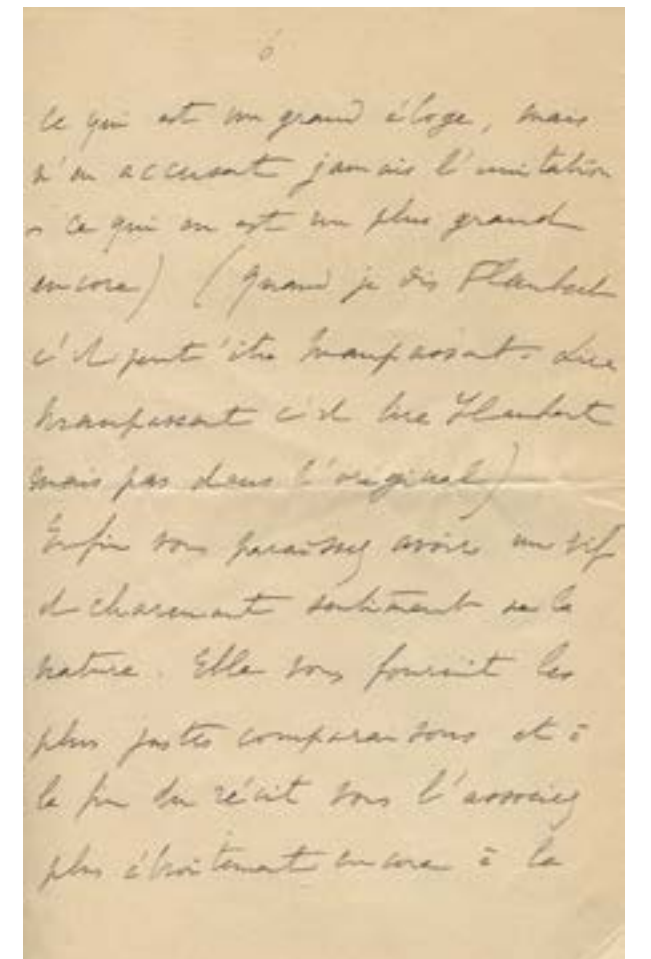 6
ce qui est un grand éloge, mais
n'en accusant jamais l'imitation
ce qui en est un plus grand
encore) (Quand je dis Flaubert
c'est peut'être Maupassant. Lire
Maupassant c'est lire Flaubert
mais pas dans l'original)
Enfin vous paraissez avoir un vif
et charmant sentiment de la
nature. Elle vous fournit les
plus justes comparaisons et à
la fin du récit vous l'associez
plus étroitement encore à la